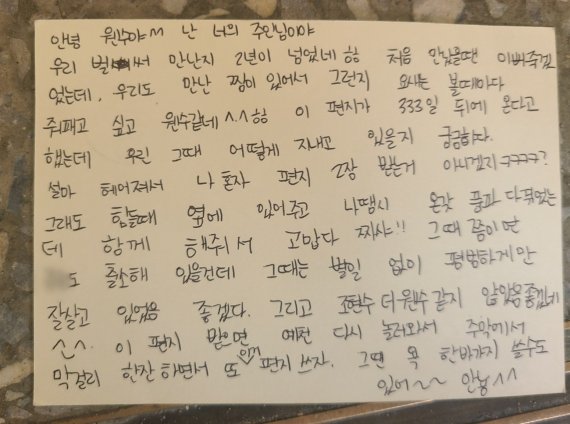 안녕 원수야~ 난 너의 주인님이야
우리 벌써 만난지 2년이 넘었네 힝 처음 만났을땐 이뻐죽겠
었는데, 우리도 만난 짬이 있어서 그런지 요새는 볼때마다
줘패고 싶고 원수같네^^힝 이 편지가 333일 뒤에 온다고
했는데 우린 그때 어떻게 지내고 있을지 궁금하다.
설마 헤어져서 나 혼자 편지 2장 받는거 아니겠지ㅋㅋㅋㅋ?
그래도 힘들때 옆에 있어주고 나땜시 온갖 풍파 다 겪었는
데 함께 해줘서 고맙다 짜샤!! 그때 쯤이면
도 출소해 있을건데 그때는 별일 없이 평범하게만
잘살고 있었음 좋겠다. 그리고 조현수 더 원수 같지 않았음좋겠네
^^. 이 편지 받으면 예천 다시 놀러와서 주막에서
막걸리 한잔 하면서 또 편지 쓰자. 그땐 욕 한바가지 쓸수도
있어~~ 안뇽^^